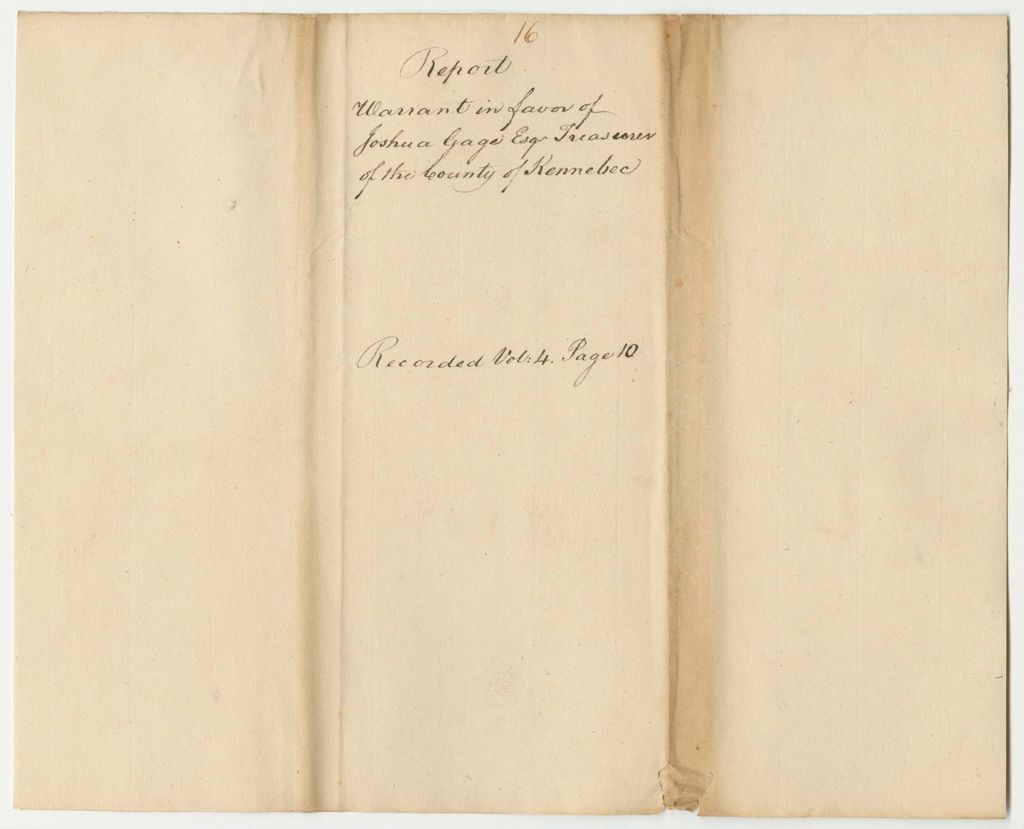 16
Report
Warrant in favor of
Joshua Gage Esqr Treasurer
of the County of Kennebec
Recorded Vol: 4. Page 10